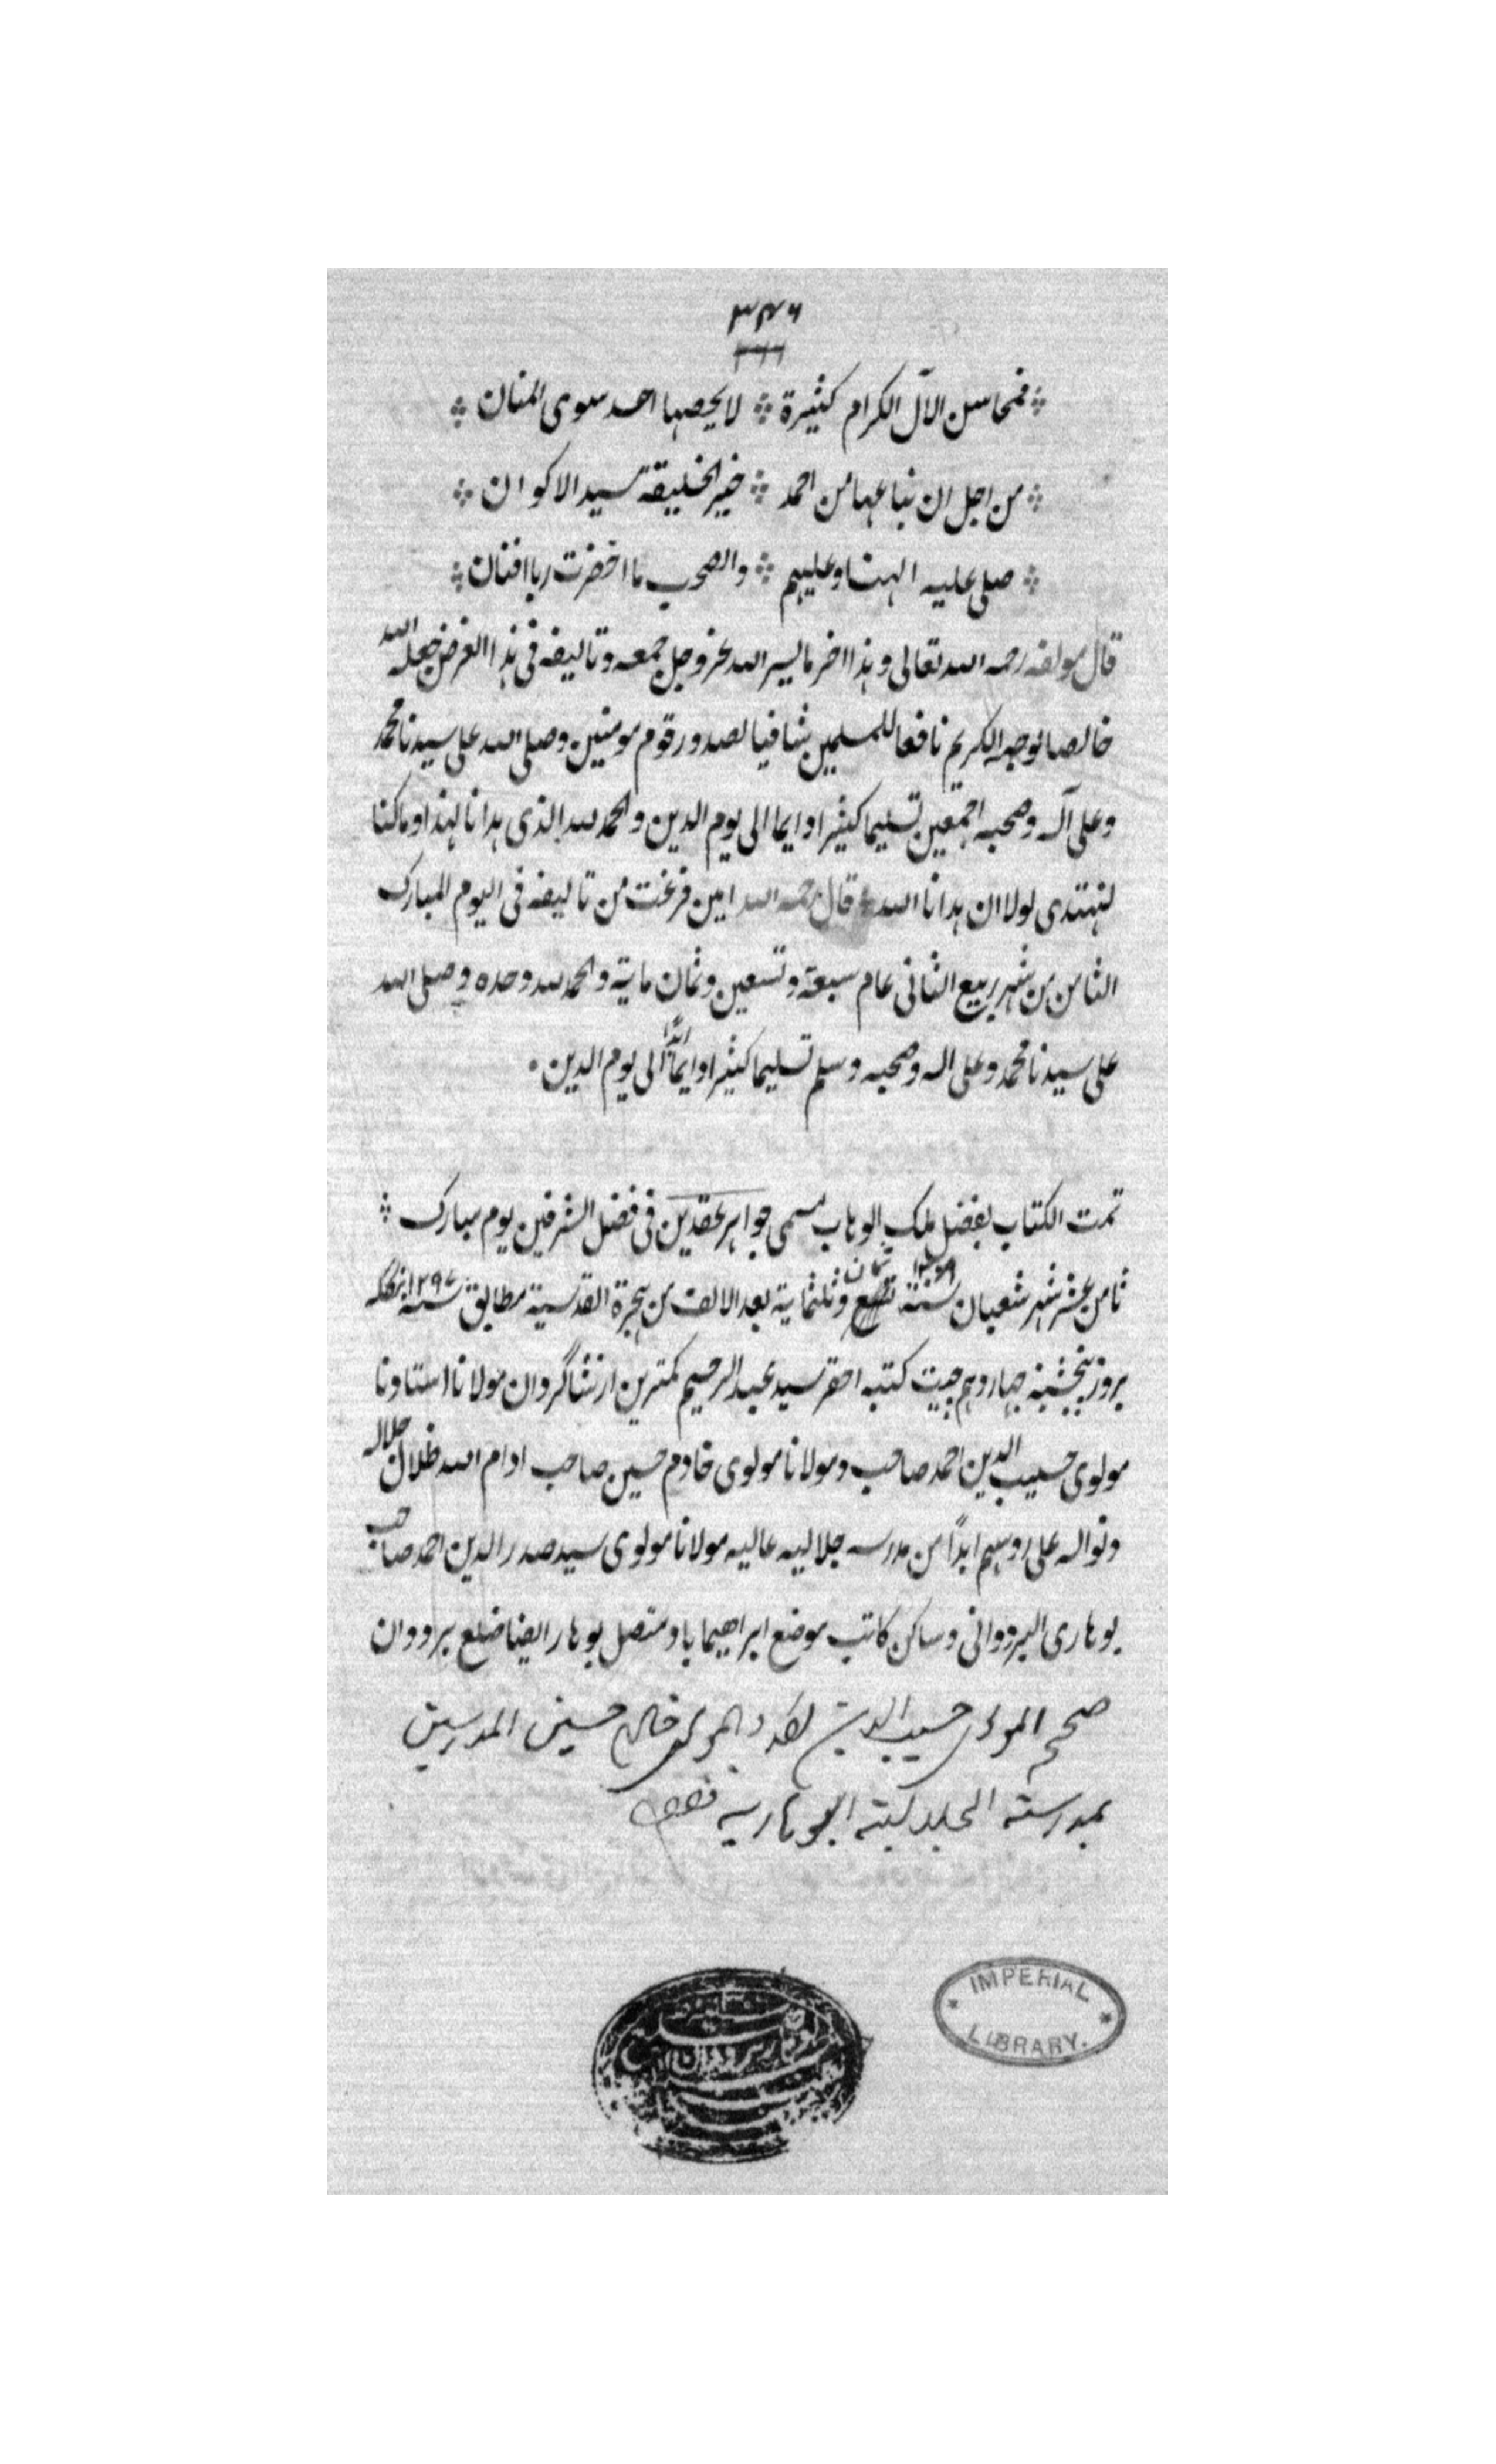 ۳۴۶
فمحاسن الآل الكرام كثيرة ⁘ لا يحصيها احد سوى المنان
من اجل ان نباعها من احمد ⁘ خير الخليقة سيد الاكوان
صلى عليه الهنا وعليهم ⁘ والصحب ما اخضرت ربا افنان
قال مولفه رحمه الله تعالى وهذا اخر ما يسر الله عز وجل جمعه وتاليفه فى هذا الغرض جعله الله
خالصا لوجهه الكريم نافعا للمسلمين شافيا لصدور قوم مومنين وصلى الله على سيدنا محمد
وعلى آله وصحبه اجمعين تسليما كثيرا دايما الى يوم الدين والحمد لله الذى هدانا لهذا وما كنا
لنهتدى لولا ان هدانا الله قال رحمه الله امين فرغت من تاليفه فى اليوم المبارك
الثامن من شهر ربيع الثانى عام سبعة وتسعين وثمان ماية والحمد لله وحده وصلى الله
على سيدنا محمد وعلى اله وصحبه وسلم تسليما كثيرا دايما ابدًا الى يوم الدين
تمت الكتاب بفضل ملك الوهاب مسمى جواهر عقدين فى فضل الشرفين يوم مبارك
ثامن عشر شهر شعبان سنة ثمان وثلثماية بعد الالف من هجرة القدسية مطابق سنه ۱۲۹۷ بنگله
بروز پنجشنبه چهاردهم چيت كتبه احقر سيد عبد الرحيم كمترين از شاگردان مولانا استادنا
مولوى حسيب الدين احمد صاحب ومولانا مولوى خادم حسين صاحب ادام الله ظلال جلاله
ونواله على روسهم ابدًا من مدرسه جلاليه عاليه مولانا مولوى سيد صدر الدين احمد صاحب
بوهارى البردوانى وساكن كاتب موضع ابراهيماباد متصل بوهار ايضا ضلع بردوان
صححه المولوى حسيب الدين احمد والمولوى خادم حسين المدرسين
بمدرسته الجلالية البوهارية
IMPERIAL
LIBRARY.